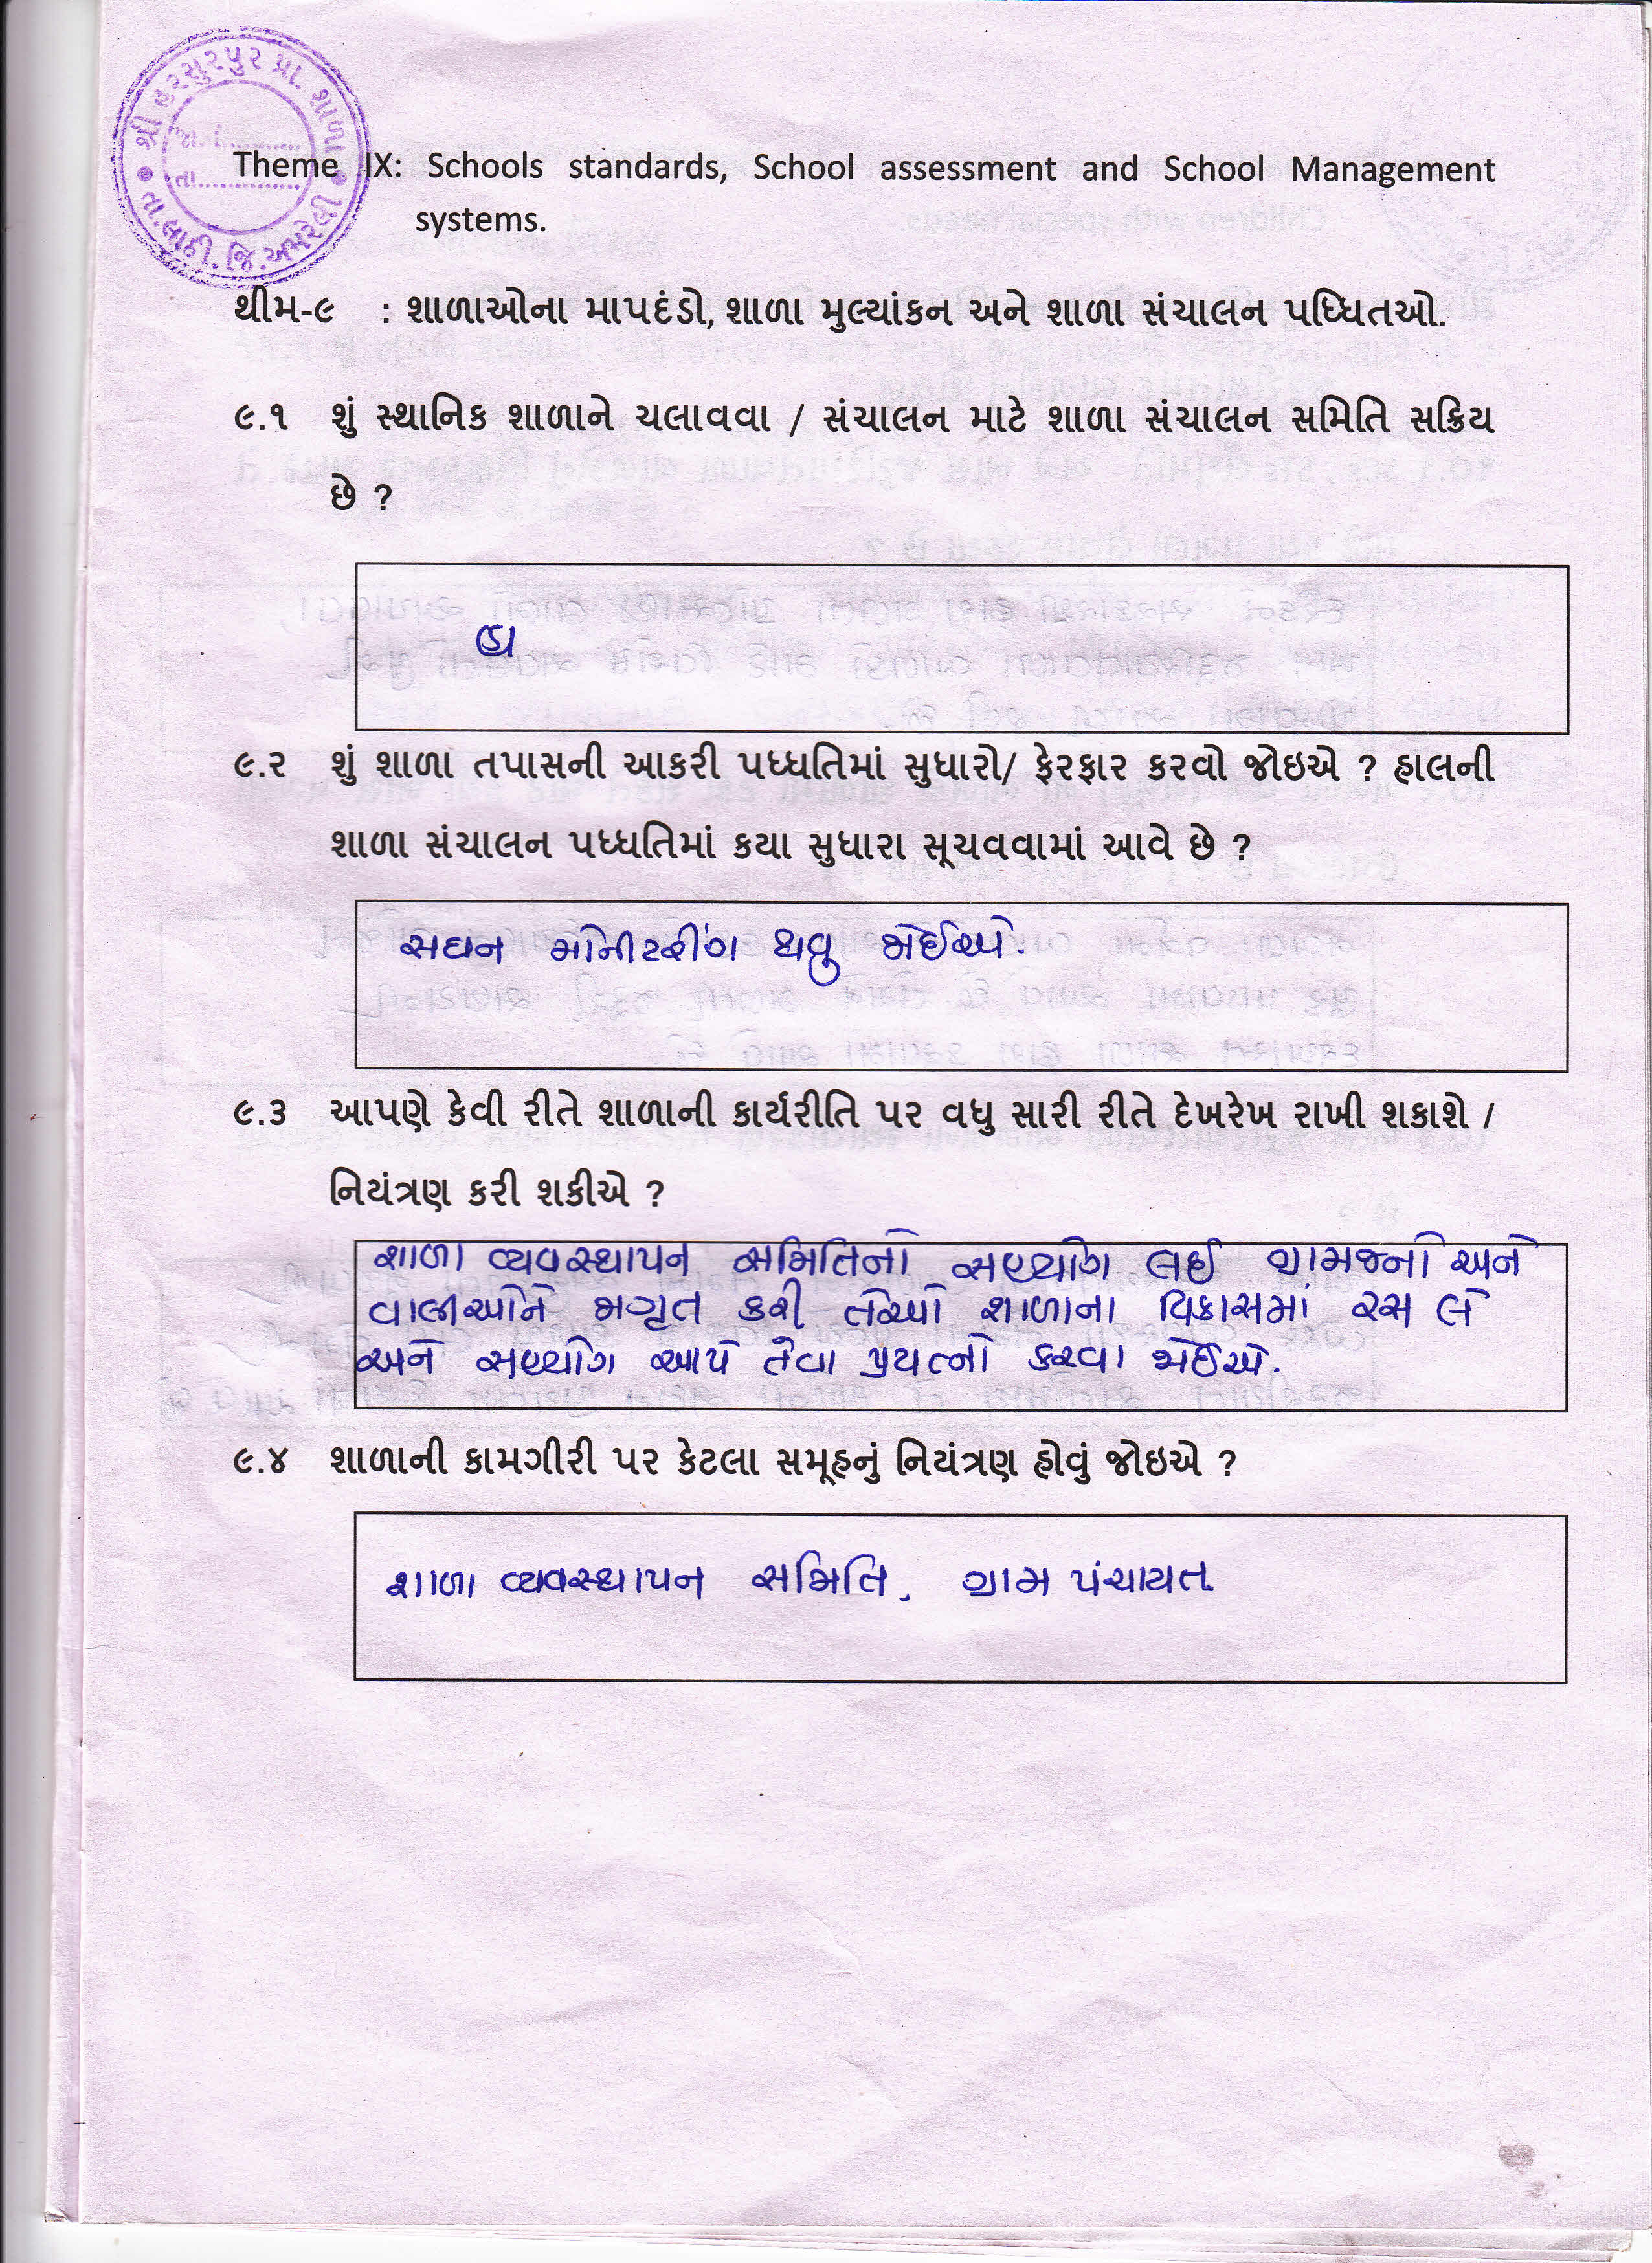 શ્રી હરસુરપુર પ્રા. શાળા
જા. નં...........
તા...............
તા.લાઠી. જિ.અમરેલી
Theme IX: Schools standards, School assessment and School Management
systems.
થીમ-૯ : શાળાઓના માપદંડો, શાળા મુલ્યાંકન અને શાળા સંચાલન પધ્ધિતઓ.
૯.૧ શું સ્થાનિક શાળાને ચલાવવા / સંચાલન માટે શાળા સંચાલન સમિતિ સક્રિય
છે ?
હા
૯.૨ શું શાળા તપાસની આકરી પધ્ધતિમાં સુધારો/ ફેરફાર કરવો જોઇએ ? હાલની
શાળા સંચાલન પધ્ધતિમાં કયા સુધારા સૂચવવામાં આવે છે ?
સઘન મોનીટરીંગ થવુ જોઈએ.
૯.૩ આપણે કેવી રીતે શાળાની કાર્યરીતિ પર વધુ સારી રીતે દેખરેખ રાખી શકાશે /
નિયંત્રણ કરી શકીએ ?
શાળા વ્યવસ્થાપન સમિતિનો સહયોગ લઈ ગ્રામજનો અને
વાલીઓને જાગૃત કરી તેઓ શાળાના વિકાસમાં રસ લે
અને સહયોગ આપે તેવા પ્રયત્નો કરવા જોઈએ.
૯.૪ શાળાની કામગીરી પર કેટલા સમૂહનું નિયંત્રણ હોવું જોઇએ ?
શાળા વ્યવસ્થાપન સમિતિ, ગ્રામ પંચાયત